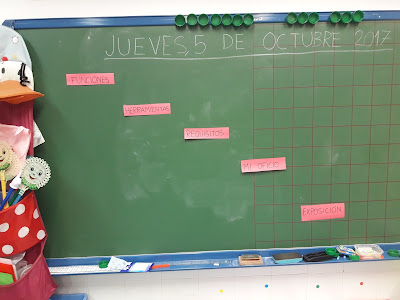 JUEVES, 5 DE OCTUBRE 2017
FUNCIONES
HERRAMIENTAS
REQUISITOS
MI OFICIO
EXPOSICIÓN